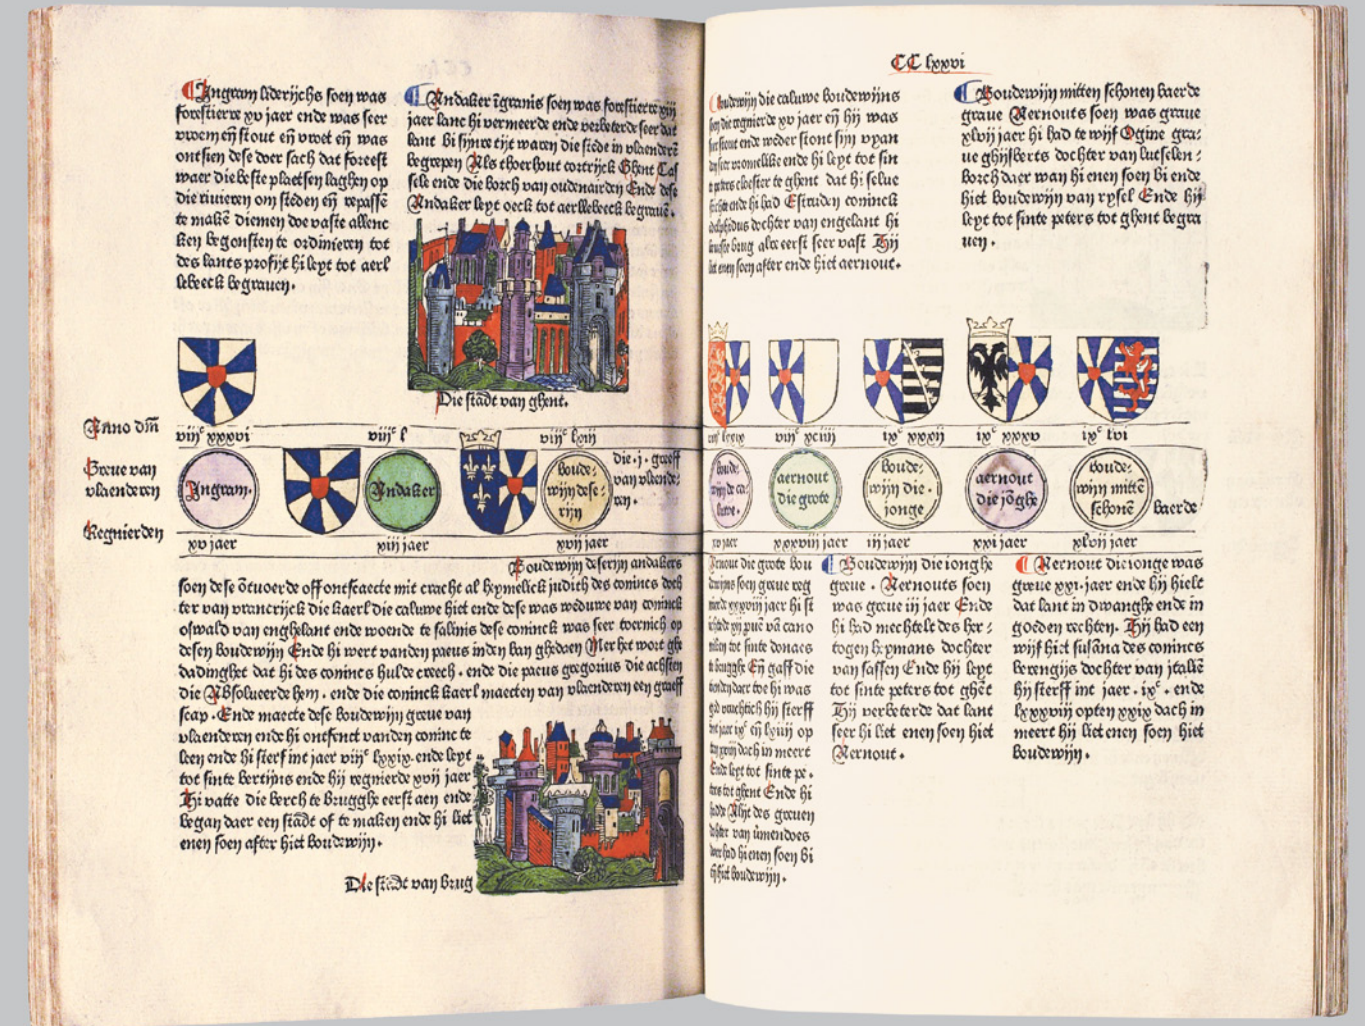 Ingram liderijchs soen was
forestierre xv jaer ende was seer
vroem eñ stout eñ vroet eñ was
ontsien dese doer sach dat foreest
waer die beste plaetsen laghen op
die rivieren om steden eñ repassē
te makē diemen doe vaste allenc
ken begonsten te ordinieren tot
des lants profijt hi leyt tot aerl
lebeeck begraven.
Andaker īgranis soen was forestierre xiij
jaer lanc hi vermeerde ende verbeterde seer dat
lant bi sijnre tijt waren die stede in vlaenderē
begrepen Als thoerhout cortrijck Ghent Cas
sele ende die borch van oudenairden Ende dese
Andaker leyt oeck tot aerllebeeck begravē.
Die stadt van ghent.
Anno dm̄
viijᶜ xxxvi
viijᶜ l
viijᶜ lxiij
Greue van
vlaenderen
Ingram.
Andaker
boude-
wijn dese-
rijn
die.j.greeff
van vlaende-
ren.
Regnierden
xv jaer
xiij jaer
xvij jaer
Boudewijn deserijn andakers
soen dese ōtvoerde off ontscaecte mit cracht al heymelick judith des conincs doch
ter van vrancrijck die kaerl die caluwe hiet ende dese was weduwe van coninck
oswald van enghelant ende woende te salinis dese coninck was seer toernich op
desen boudewijn Ende hi wert vanden paeus inden ban ghedaen Mer het wort ghe
dadinghet dat hi des conincs hulde creech. ende die paeus gregorius die achtste
die Absolueerde hem. ende die coninck kaerl maecten van vlaenderen een graeff
scap. Ende maecte dese boudewijn greue van
vlaenderen ende hi ontfenct vanden coninc te
leen ende hi sterf int jaer viijᶜ lxxix. ende leyt
tot sinte bertijns ende hij regnierde xvij jaer
Hi vatte die berch te Brugghe eerst aen ende
began daer een stadt of te maken ende hi liet
enen soen after hiet boudewijn.
Die stadt van Brug
CC lxxvi
boudewijn die caluwe boudewijns
soen die regnierde xv jaer eñ hij was
seer stout ende weder stont sijn vyan
den seer vromelike ende hi leyt tot sint
peters cloester te ghent dat hi selue
stichte ende hi had Estruden coninck
dochter van engelant hi
brug alre eerst seer vast Hij
liet enen soen after ende hiet aernout.
Boudewijn mitten schonen baerde
graue Aernouts soen was graue
xlvij jaer hi had te wijf Ogine gra-
ue ghijsberts dochter van lutselen-
borch daer wan hi enen soen bi ende
hiet boudewijn van rysel Ende hij
leyt tot sinte peters tot ghent begra
uen.
viijᶜ lxxix
viijᶜ xciiij
ixᶜ xxxij
ixᶜ xxxv
ixᶜ lvi
boude-
wijn die ca-
luwe.
aernout
die grote
boude-
wijn die.
jonge
aernout
die jōghe
boude-
wijn mittē
schonē baerde
xv jaer
xxxviij jaer
iij jaer
xxi jaer
xlvij jaer
Aernout die grote bou
dewijns soen greue reg
nierde xxxviij jaer hi st
ichtede xij
niken tot sinte donaes
te brugghe Eñ gaff die
daer toe hi was
hij sterff
int jaer ixᶜ eñ lxiiij op
dach in meert
Ende leyt tot sinte pe.
ters tot ghent Ende hi
hadde Alijt des greuen
dochter van
daer had hi enen soen bi
eñ hiet boudewijn.
Boudewijn die ionghe
greue. Aernouts soen
was greue iij jaer Ende
hi had mechtelt des her-
togen heymans dochter
van sassen Ende hij leyt
tot sinte peters tot ghēt
Hij verbeterde dat lant
seer hi liet enen soen hiet
Aernout.
Aernout die ionge was
greue xxi. jaer ende hij hielt
dat lant in dwanghe ende in
goeden rechten. Hij had een
wijf hiet susāna des conincs
berengijs dochter van jtaliē
hij sterff int jaer. ixᶜ. ende
lxxxviij opten xxix dach in
meert hij liet enen soen hiet
boudewijn.